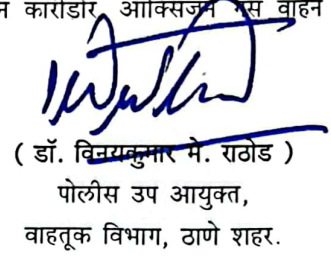 न कारीडोर, ऑक्सिजन गॅस वाहन
( डॉ. विनयकुमार मे. राठोड )
पोलीस उप आयुक्त,
वाहतूक विभाग, ठाणे शहर.